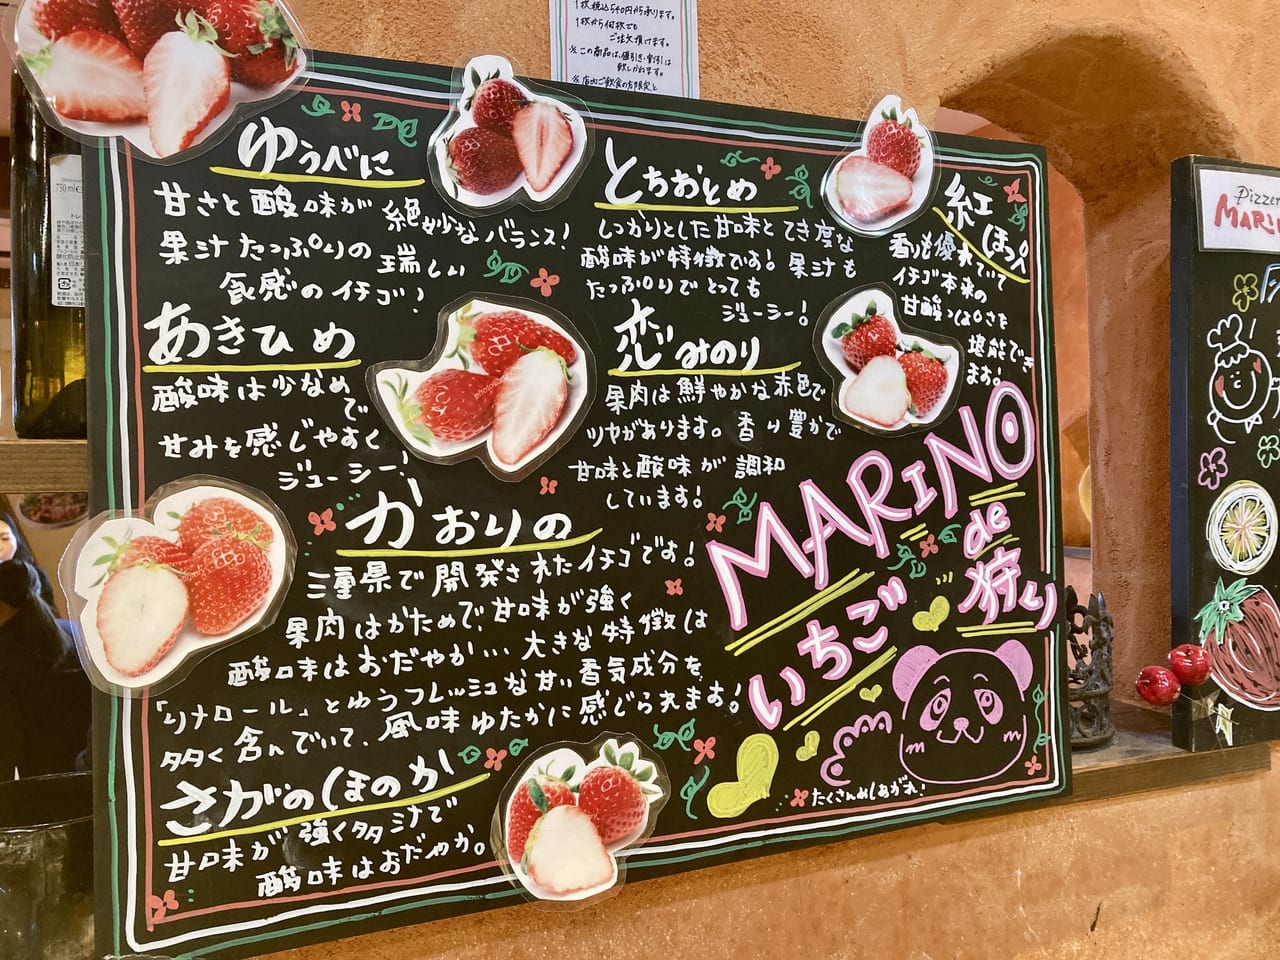 1枚税込540円から承ります。
1枚から何枚でも
ご注文頂けます。
※この商品は、値引き・割引は
致しかねます。
ゆうべに
甘さと酸味が絶妙なバランス!
果汁たっぷりの瑞しい
食感のイチゴ!
あきひめ
酸味は少なめ
で
甘みを感じやすく
ジューシー!
かおりの
三重県で開発されたイチゴです!
果肉はかためで、甘味が強く
酸味はおだやか…大きな特徴は
「リナロール」とゆうフレッシュな甘い香気成分を
多く含んでいて、風味ゆたかに感じられます!
さがのほのか
甘味が強く多ミナで
酸味はおだやか。
とちおとめ
しっかりとした甘味とてき度な
酸味が特徴です!果汁も
たっぷりでとっても
ジューシー!
恋みのり
果肉は鮮やかな赤色で
ツヤがあります。香り豊かで
甘味と酸味が調和
しています!
紅ほっぺ
香りも優れていて
イチゴ本来の
甘酸っぱさを
堪能でき
ます!
MARINO
de
いちご狩り
たくさんめしあがれ!
750ml
Pizzer
MARI